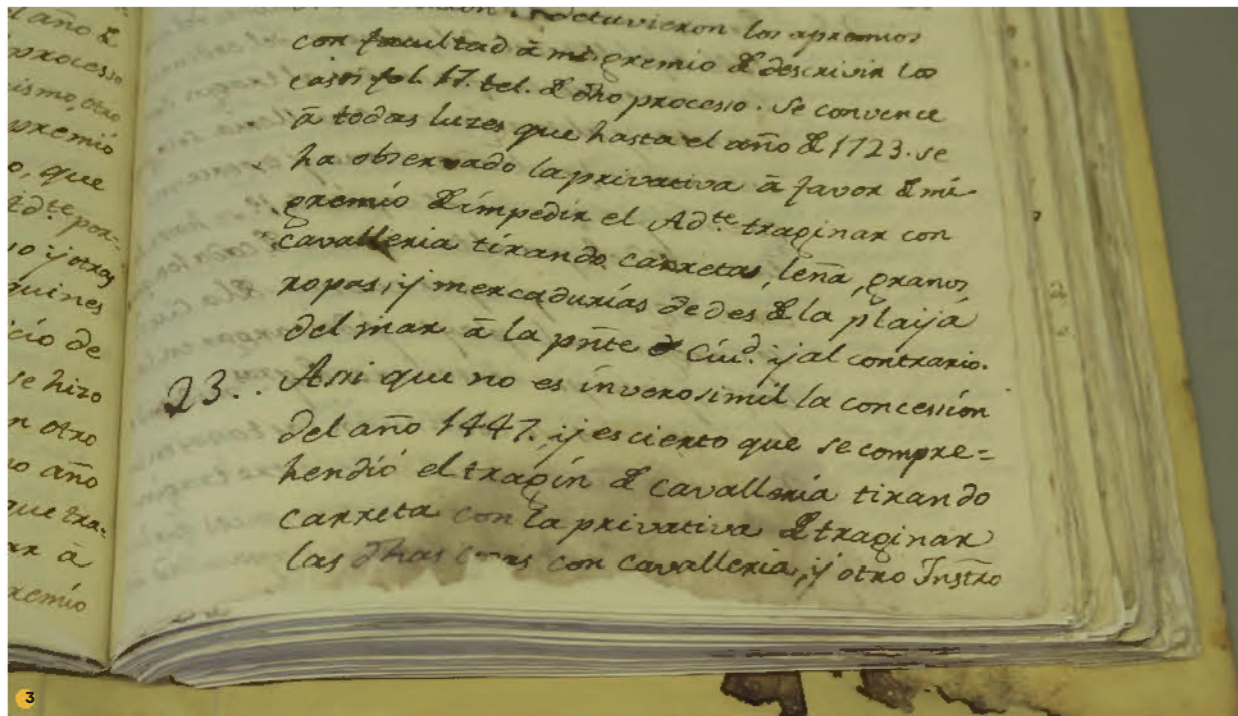 l año &
processo
ismo, otro
premio
o, que
Ad.te por-
io ÿ otras
guines
cio de
se hizo
n otro
no año
que tra-
ar à
remio
detuvieron los apremios
con facultad à mi gremio & descrivir los
casos fol. 17. bel. & dho processo. Se convence
à todas luzes que hasta el año & 1723. se
ha observado la privativa à favor & mi
gremio & impedir el Ad.te traginar con
cavalleria tirando carretas, leña, granos
ropas, ÿ mercadurias dedes & la plaija
del mar à la pñte & Ciud. ÿ al contrario.
23.. Assi que no es inverosimil la concession
del año 1447. ÿ es cierto que se compre=
hendió el tragin & cavalleria tirando
carreta con la privativa & traginar
las dhas cosas con cavalleria, ÿ otro Instro
3